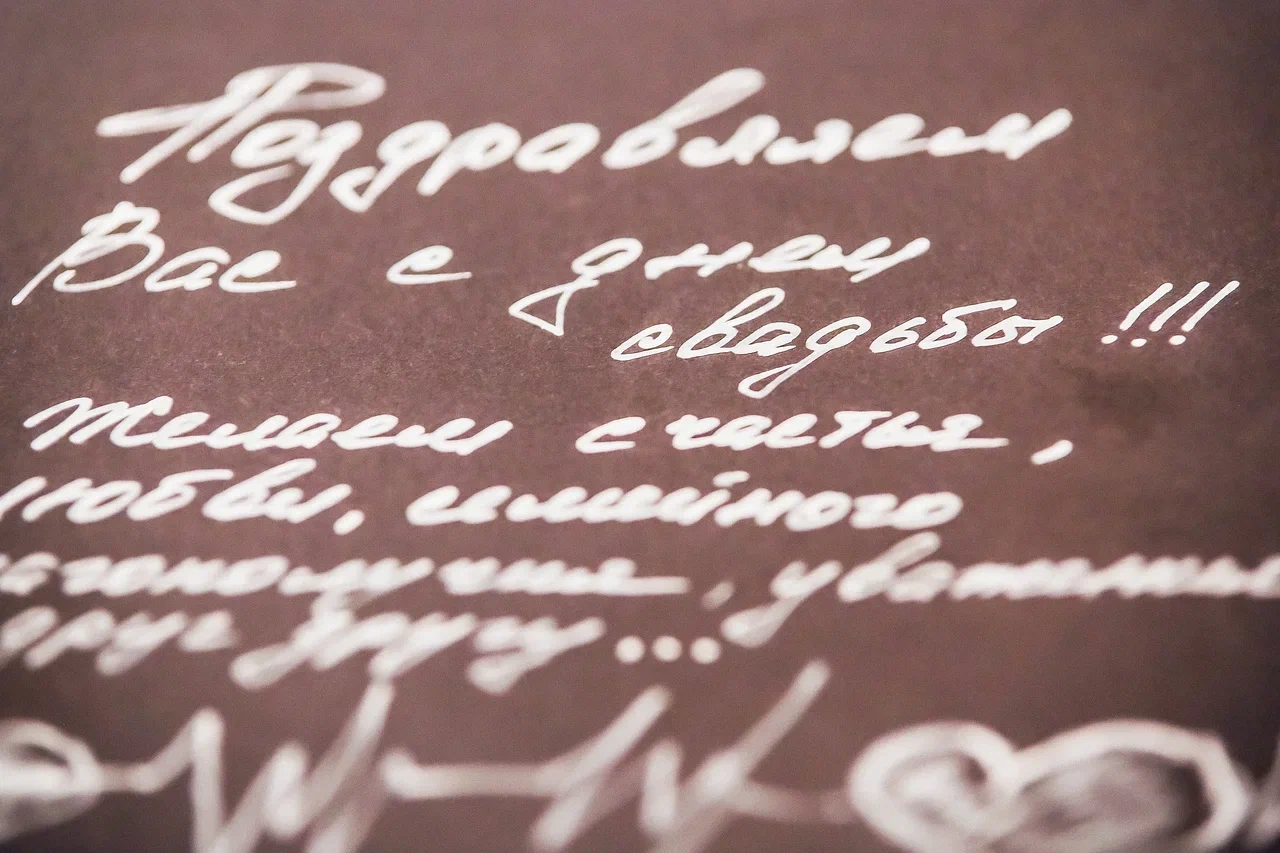 Поздравляем
Вас с днем
свадьбы !!!
Желаем счастья,
любви, семейного
благополучия, уважения
друг другу...